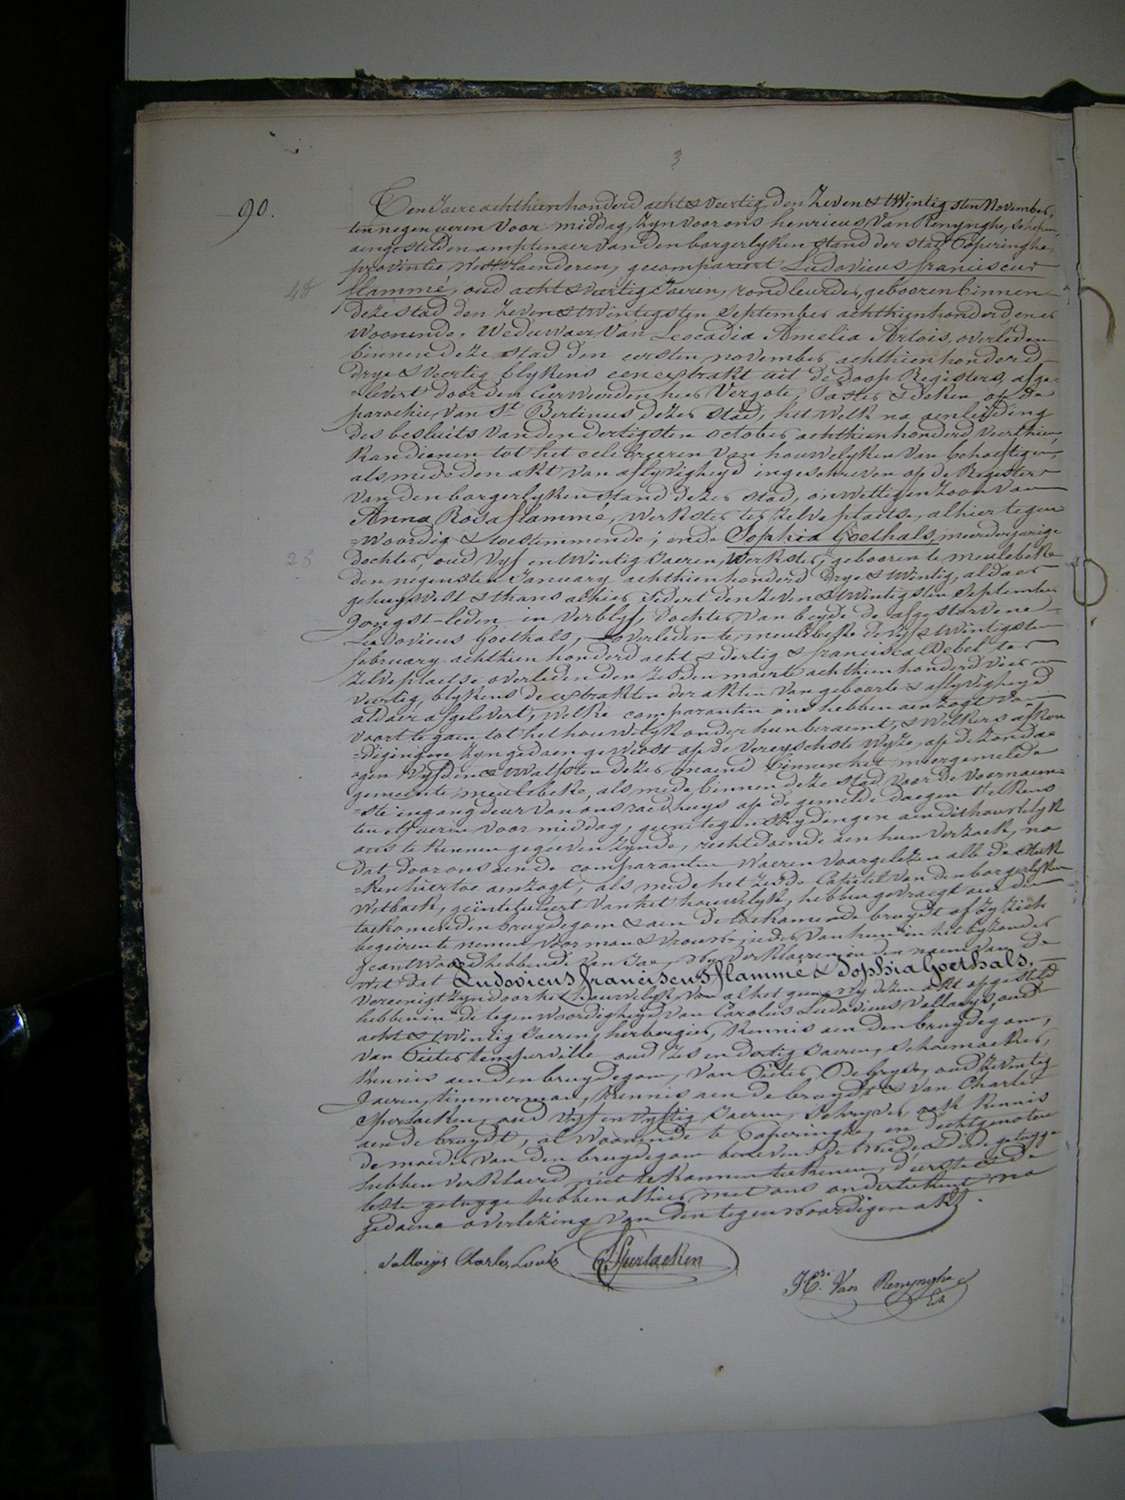 3
90.
Ten Jaere achthien honderd acht & veertig, den Zeven & twintigsten November,
ten negen uren voor middag, zyn voor ons henricus Van Renynghe, schepen,
aengestelden amptenaer van den borgerlyken stand der stad Poperinghe,
provintie Westvlaenderen, gecompareert Ludovicus franciscus
48 flammé, oud acht & veertig Jaeren, rondleurder, gebooren binnen
deze stad den zeven & twintigsten September achthien honderd, en er
Woonende. Weduwaer van Leocadia Amelia Artois, overleden
binnen deze stad den eersten november achthien honderd
drye & veertig, blykens een extrakt uit de doop Registers, afge-
=levert door den Eerweerden heer Vergote, Paster & deken op de
parochie van St. Bertinus dezer stad, het welk na aenleyding
des besluits van den dertigsten october achthien honderd veerthien,
kan dienen tot het celebreeren van houwelyken van behoeftigen,
als mede den akt van aflyvigheyd ingeschreven op de Registers
van den borgerlyken stand dezer stad, onwettigen zoon van
Anna Rosa flammé, werkster ter zelve plaetse, alhier tegen
=woordig & toestemmende; ende Sophia Goethals, meerderjarige
25 dochter, oud vyf en twintig Jaeren, werkster, gebooren te meulebeke
den negensten January achthien honderd drye & twintig, aldaer
gehuysvest & thans alhier sedert den zeven & twintigsten September
jongst-leden in verblyf, dochter van beyde de afgestorvene
Ludovicus Goethals, overleden te meulebeke de vyf & twintigsten
february achthien honderd acht & dertig & francisca Debel ter
zelve plaetse overleden den zesden maerte achthien honderd vier
veertig, blykens de extrakten der akten van geboorte & aflyvigheyd
aldaer afgelevert; welke comparanten ons hebben aenzogt van
voort te gaen tot het houwelyk onder hun beraemt, & welkers afkon
=digingen zyn gedaen geweest op de vereyschte wyze, op de zonda=
=gen vyfden & twalfsten dezer maend binnen het meergemelde
gemeente meulebeke, als mede binnen deze stad voor de voornaem=
=ste ingang deur van ons raedhuys op de gemelde daegen telkens
ten elf uren voor middag, geene tegenstrydingen aen dit houwelyk
ons te kennen gegeeven zynde, rechtdoende aen hun verzoek, na
dat door ons aen de comparanten waeren voorgelezen alle de stuk
=ken hiertoe aenzogt, als mede het zesde Capittel van den borgerlyken
Wetboek, geïntituleert van het houwelyk, hebben gevraegt aen den
toekomenden bruydegom & aen de toekomende bruydt of zy zich
begeiren te nemen voor man & vrouw: ieder van hun in het byzonder
geantwoord hebbende van Jae, wy verklaeren in den naem van de
Wet dat Ludovicus franciscus flammé & Sophia Goethals.
vereenigt zyn door het houwelyk van al het gene wy dezen akt opgesteld
hebben in de tegenwoordigheyd van Carolus Ludovicus Vallaeys, oud
acht & twintig Jaeren, herbergier, kennis aen den bruydegom,
van Pieter Lemperville oud zes en dertig Jaeren, Schoenmaeker,
kennis aen den bruydegom, van Pieter De Gryse, oud zeventig
Jaeren, timmerman, kennis aen de bruydt & van Charles
Sperlaeken, oud vyf en vyftig Jaeren, Schryver, ook kennis
aen de bruydt, al woonende te Poperinghe, en d'echtgenoten
de moeder van den bruydegom benevens de tweede & derde getuyge
hebben verklaerd niet te konnen teekenen, d'eerste & de
leste getuyge hebben alhier met ons onderteekent na
gedaene overlezing van den tegenwoordigen akt.
Vallaeys Charles Louis C. Sperlaeken
Hri. Van Renynghe